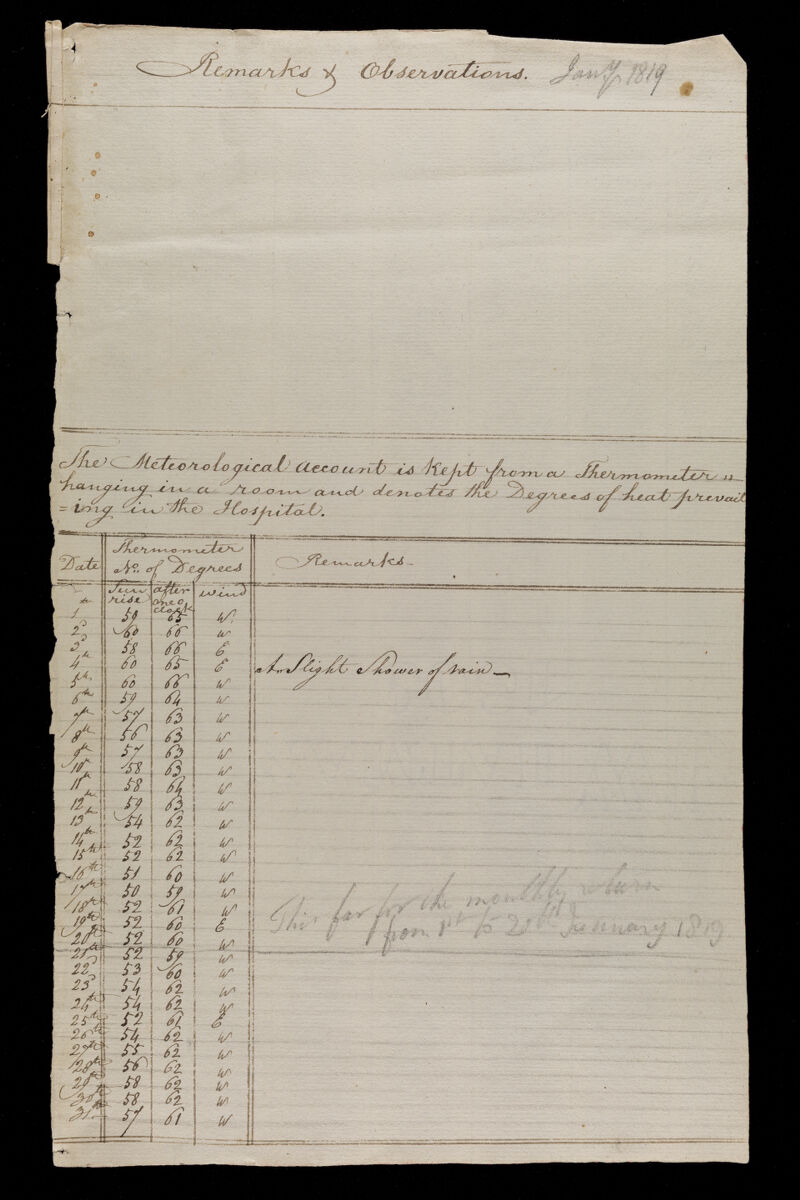 Remarks & Observations. Jany 1819
The Meteorological account is kept from a Thermometer =
hanging in a room and denotes the Degrees of heat prevail
=ing in the Hospital.
Date Thermometer Remarks
No. of Degrees
Sun rise after one o clock wind
1st 59 65 W.
2d 60 66 W
3d 58 66 E
4th 60 65 E A Slight Shower of rain
5th 60 66 W
6th 59 64 W
7th 57 63 W
8th 56 63 W
9th 57 63 W
10th 58 63 W
11th 58 64 W
12th 59 63 W
13th 54 62 W
14th 52 62 W
15th 52 62 W
16th 51 60 W
17th 50 59 W
18th 52 61 W This far for the monthly return
19th 52 60 E from 1st to 20th January 1819
20th 52 60 W
21st 52 59 W
22d 53 60 W
23d 54 62 W
24th 54 62 W
25th 52 61 E
26th 54 62 W
27th 55 62 W
28th 56 62 W
29th 58 62 W
30th 58 62 W
31st 57 61 W